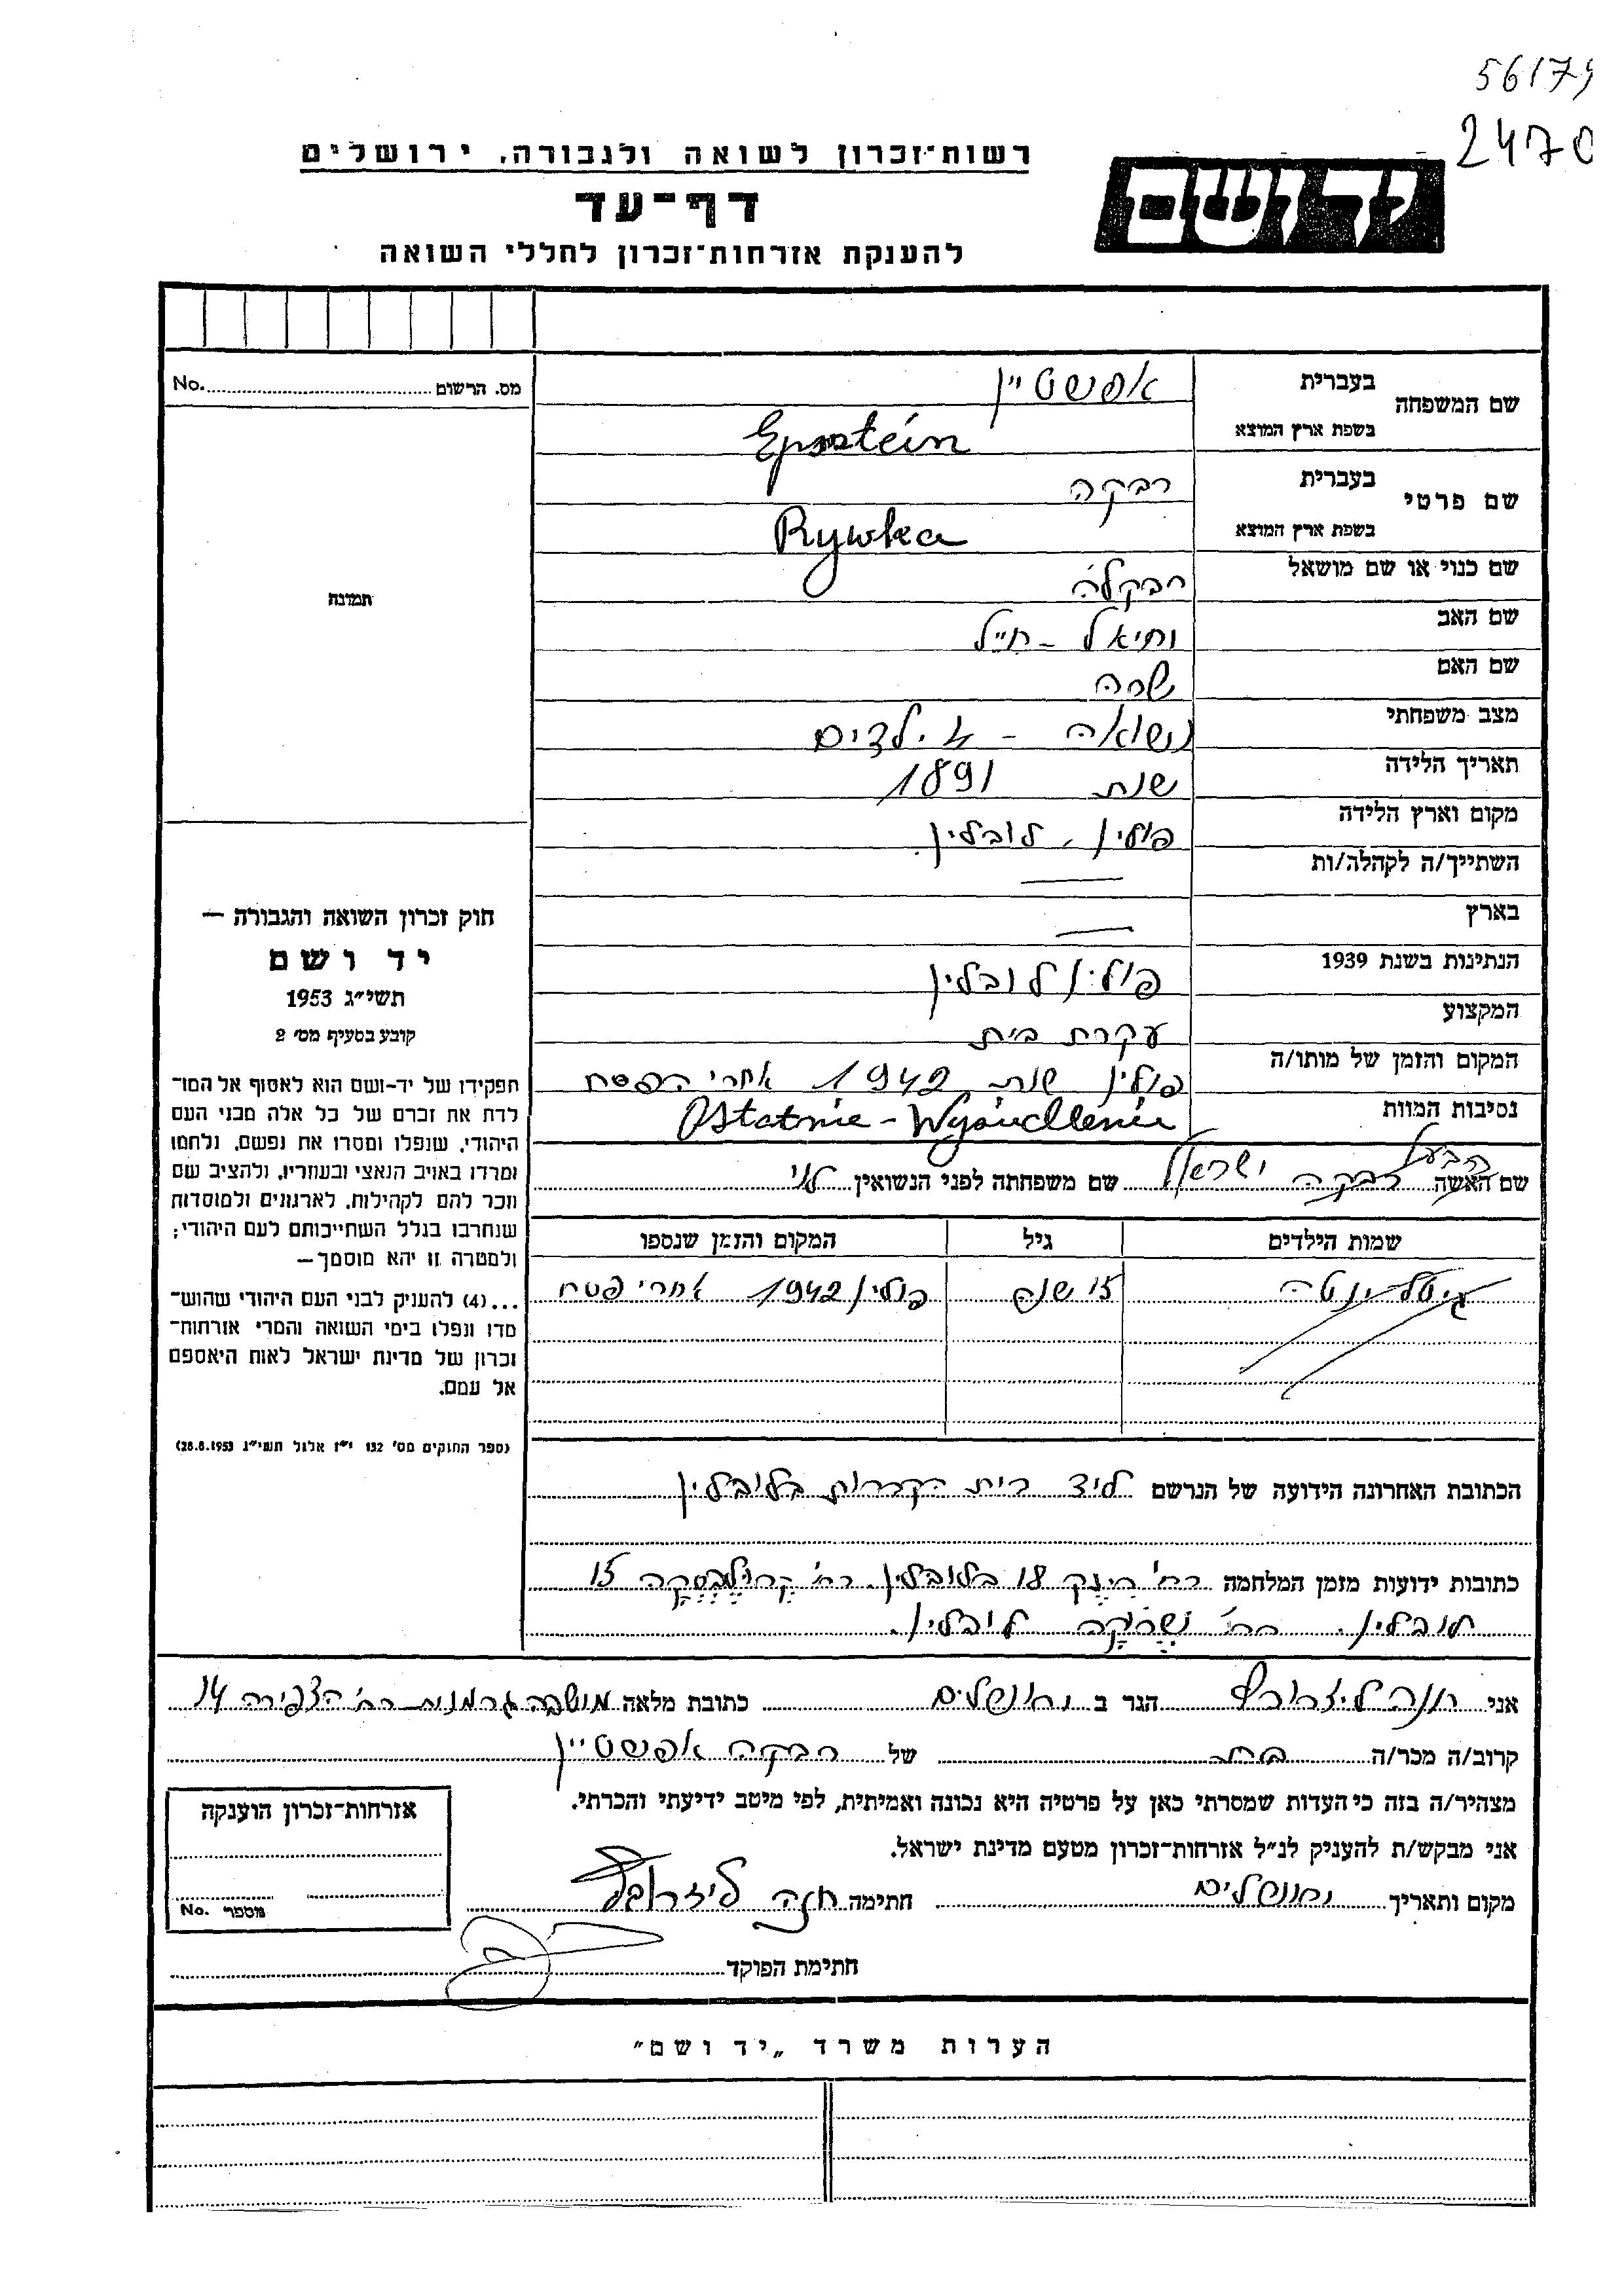 56179
2470
רשות־זכרון לשואה ולגבורה, ירושלים
יד ושם
דף־עד
להענקת אזרחות־זכרון לחללי השואה
מס. הרשום No.
שם המשפחה
בעברית אפשטיין
בשפת ארץ המוצא Epstein
שם פרטי
בעברית רבקה
בשפת ארץ המוצא Rywka
שם כנוי או שם מושאל רבקלה
שם האב יחיאל -
שם האם שרה
מצב משפחתי נשואה - 4 ילדים
תאריך הלידה שנת 1891
מקום וארץ הלידה פולין, לובלין
השתייך/ה לקהלה/ות —
בארץ —
הנתינות בשנת 1939 פולין לובלין
המקצוע עקרת בית
המקום והזמן של מותו/ה פולין שנת 1942 אחרי הפסח
נסיבות המוות Ostatnie - Wysiedlenie
הבעל
שם האשה רבקה ישראל שם משפחתה לפני הנשואין לוי
שמות הילדים גיל המקום והזמן שנספו
גיטל ינטה 15 שנה פולין 1942 אחרי פסח
הכתובת האחרונה הידועה של הנרשם ליד בית הקברות בלובלין
כתובות ידועות מזמן המלחמה רח' 18 בלובלין. רח' 15
לובלין. רח' לובלין.
תמונה
חוק זכרון השואה והגבורה —
יד ושם
תשי״ג 1953
קובע בסעיף מס׳ 2
תפקידו של יד־ושם הוא לאסוף אל המו־
לדת את זכרם של כל אלה מבני העם
היהודי, שנפלו ומסרו את נפשם, נלחמו
ומרדו באויב הנאצי ובעוזריו, ולהציב שם
וזכר להם לקהילות, לארגונים ולמוסדות
שנחרבו בגלל השתייכותם לעם היהודי;
ולמטרה זו יהא מוסמך—
...(4) להעניק לבני העם היהודי שהוש־
מדו ונפלו בימי השואה והמרי אזרחות־
זכרון של מדינת ישראל לאות היאספם
אל עמם.
(ספר החוקים מס׳ 132 י״ז אלול תשי״ג 28.8.1953)
אני חנה הגר ב ירושלים כתובת מלאה מושבה גרמנית רח' הצפירה 14
קרוב/ה מכר/ה בת של רבקה אפשטיין
מצהיר/ה בזה כי העדות שמסרתי כאן על פרטיה היא נכונה ואמיתית, לפי מיטב ידיעתי והכרתי.
אני מבקש/ת להעניק לנ״ל אזרחות־זכרון מטעם מדינת ישראל.
מקום ותאריך ירושלים חתימה חנה
חתימת הפוקד
אזרחות־זכרון הוענקה
מספר No.
הערות משרד „יד ושם״